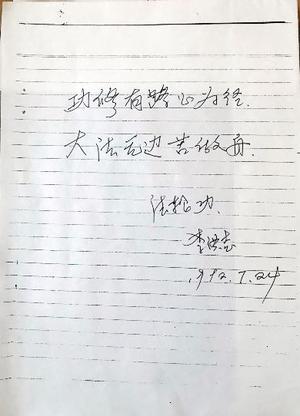 功修有路心为径.
大法无边苦做舟.
法轮功.
李洪志
1992.7.24